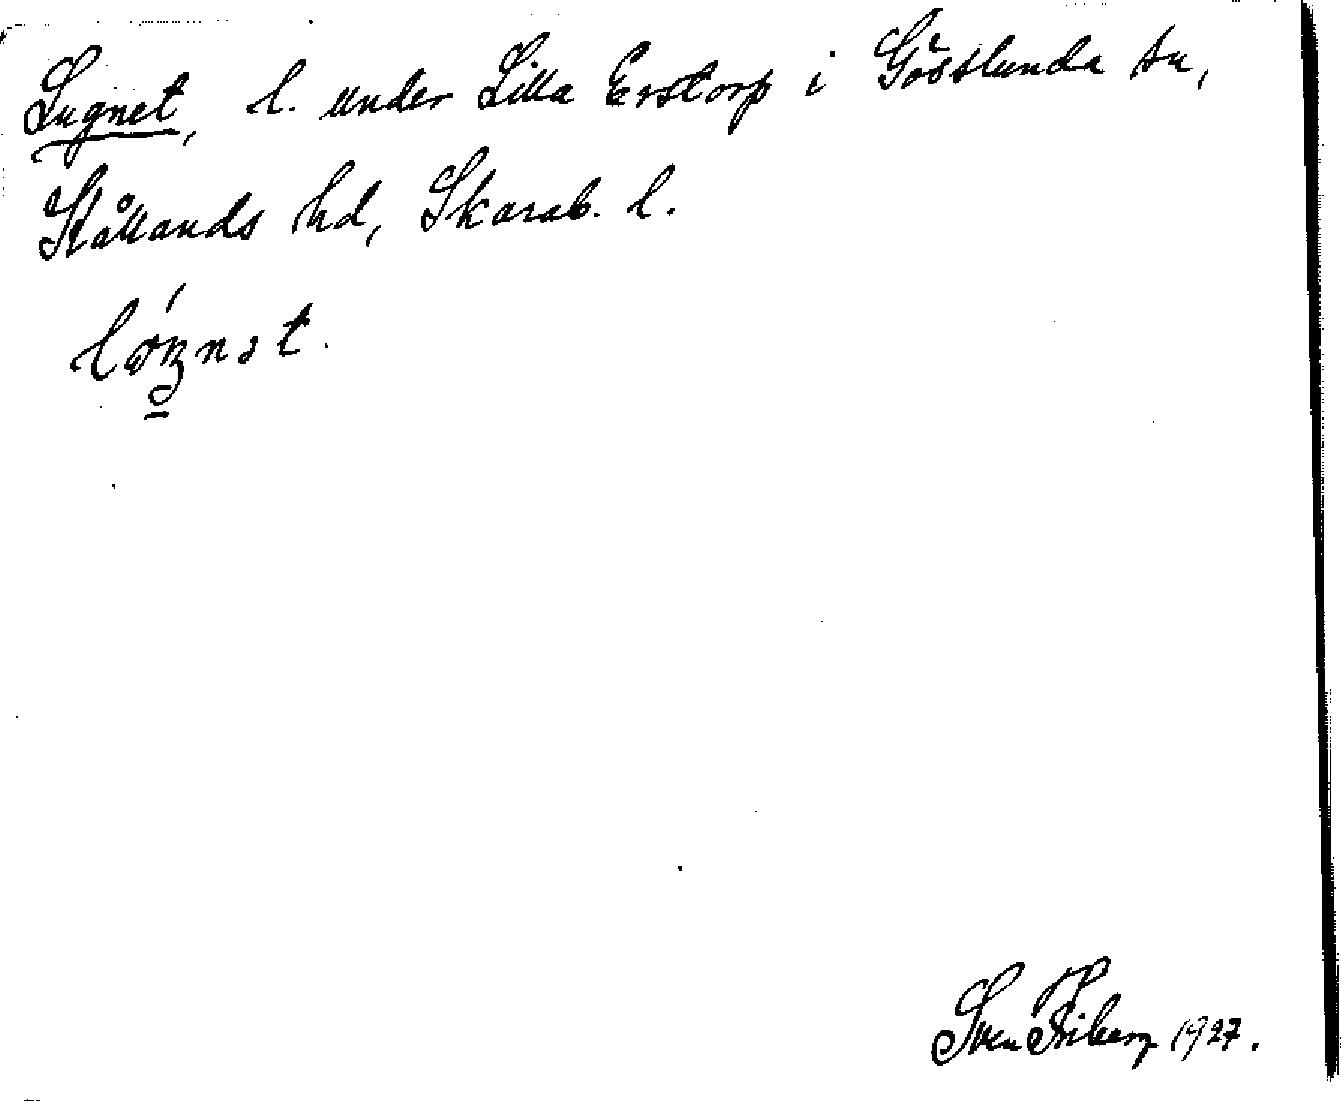 Lugnet, l. under Lilla Erstorp i Gösslunda sn,
Kållands hd, Skarab. l.
Sven Friberg 1927.